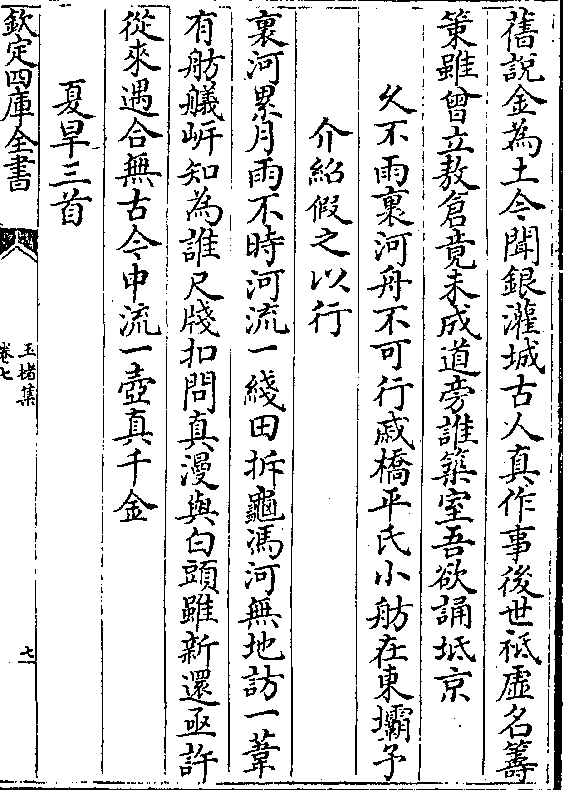 舊説金為土今聞銀灌城古人真作事後世祗虛名籌
策雖曾立敖倉竟未成道旁誰築室吾欲誦坻京
久不雨裏河舟不可行戚橋平氏小舫在東壩予
介紹假之以行
裏河累月雨不時河流一綫田拆龜馮河無地訪一葦
有舫艤岍知為誰尺牋扣問真漫與白頭雖新還亟許
從來遇合無古今中流一壺真千金
夏旱三首
欽定四庫全書
玉楮集
卷七
七